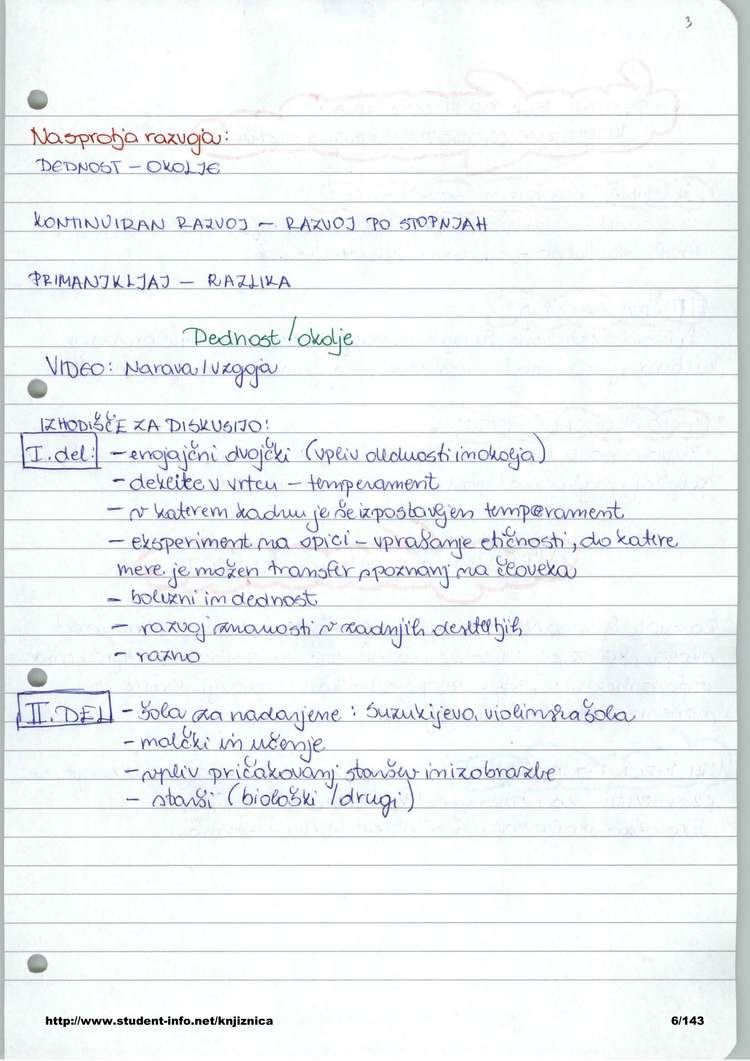 3
Nasprotja razvoja:
DEDNOST – OKOLJE
KONTINUIRAN RAZVOJ – RAZVOJ PO STOPNJAH
PRIMANJKLJAJ – RAZLIKA
Dednost/okolje
VIDEO: Narava/vzgoja
IZHODIŠČE ZA DISKUSIJO:
I. del: – enojajčni dvojčki (vpliv dednosti in okolja)
– deklice v vrtcu – temperament
– v katerem kadru je še izpostavljen temperament
– eksperiment na opici – vprašanje etičnosti, do katere
mere je možen transfer spoznanj na človeka
– bolezni in dednost
– razvoj znanosti v zadnjih desetletjih
– razno
II. DEL – šola za nadarjene: Suzukijeva violinska šola
– malčki in učenje
– vpliv pričakovanj staršev in izobrazbe
– starši (biološki/drugi)
http://www.student-info.net/knjiznica 6/143